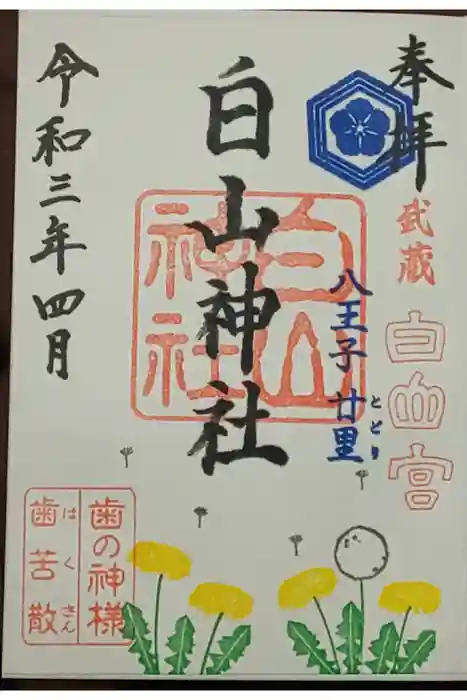 奉拝
武蔵
白山宮
八王子 廿里
とどり
白山神社
白山
神社
令和三年四月
歯の神様
歯苦散
はくさん